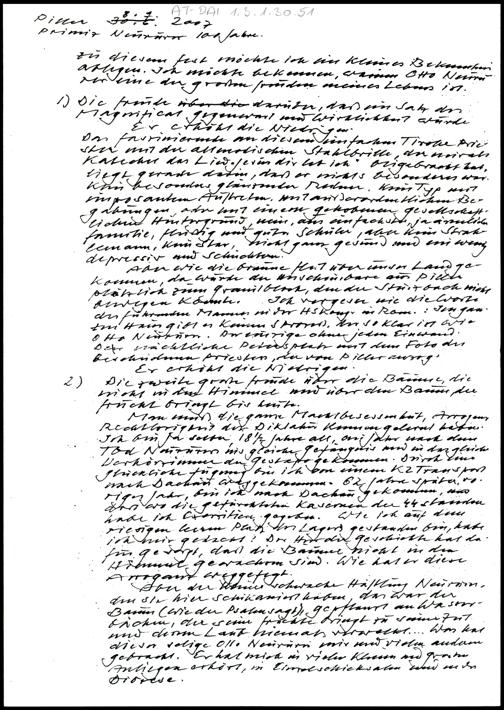 AT-DAI 1.3.1.30.51
Piller 8.7. 2007
Primiz Neururer 100 Jahre.
Zu diesem Fest möchte ich ein kleines Bekenntnis
ablegen. Ich möchte bekennen, warum Otto Neuru
rer eine der großen Freuden meines Lebens ist.
1) Die Freude über die darüber, daß ein Satz des
Magnificat Gegenwart und Wirklichkeit wurde
Er erhöht die Niedrigen.
Das Faszinierende an diesem einfachen Tiroler Prie-
ster mit der altmodischen Stahlbrille, der mir als
Katechet das Lied „Jesu dir leb ich" beigebracht hat,
liegt gerade darin, daß er nichts besonderes war.
Kein besonders glänzender Redner. Kein Typ mit
imposantem Auftreten. mit außerordentlichen Be-
gabungen, oder mit einem gehobenen gesellschaft
lichen Hintergrund, nein, aus einfacher, ja ärmlicher
Familie, fleißig und guter Schüler, aber kein Strah
lemann, kein Star, nicht ganz gesund und ein wenig
depressiv und schüchtern.
Aber wie die braune Flut über unser Land ge
kommen, da wurde der unscheinbare aus Piller
plötzlich zum Granitblock, den der Sturzbach nicht
bewegen konnte. Ich vergesse nie die Worte
des führenden Mannes in der HS Kong. in Rom:
Hans gibt es keinen so klar ist wie
Otto Neururer. Der einzige ohne jeden Einwand.
Der mächtliche Petersplatz mit dem Foto des
bescheidenen Priesters, der von Piller auszog.
Er erhöht die Niedrigen.
2) Die zweite große Freude über die Bäume, die
nicht in den Himmel und über den Baum, der
Frucht bringt bis heute.
Man muß die ganze Machtbesessenheit, Arroganz,
Rechtlosigkeit der Diktatur kennengelernt haben.
Ich bin ja selber 18½ Jahre alt, ein Jahr nach dem
Tod Neururers ins gleiche Gefängnis und in das gleiche
Verhörzimmer der Gestapo gekommen. Durch eine
glückliche Fügung bin ich von einem KZ Transport
nach Dachau weggekommen. 62 Jahre später, vo-
riges Jahr, bin ich nach Dachau gekommen, und
dort wo die gefürchteten Kasernen der SS standen
habe ich Exerzitien gegeben. Wie ich auf dem
riesigen leeren Platz des Lagers gestanden bin, habe
ich mir gedacht: Der Herr der Geschichte hat da-
für gesorgt, daß die Bäume nicht in den
Himmel gewachsen sind. Wie hat er diese
Arroganz weggefegt.
Aber der kleine schwache Häftling Neururer,
den sie hier schikaniert haben, das war der
Baum (wie der Psalm sagt), gepflanzt an Wasser-
bächen, der seine Früchte bringt zu seiner Zeit
und deren Laub niemals verwelkt.... Was hat
dieser selige Otto Neururer mir und vielen anderen
gebracht. Er hat mich in vielen kleinen und großen
Anliegen erhört, in Einzelschicksalen und in der
Diözese.